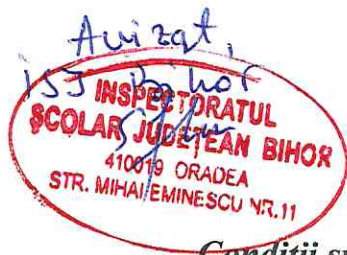 Avizat,
ISJ Bihor
INSPECTORATUL
ȘCOLAR JUDEȚEAN BIHOR
410019 ORADEA
STR. MIHAI EMINESCU NR.11